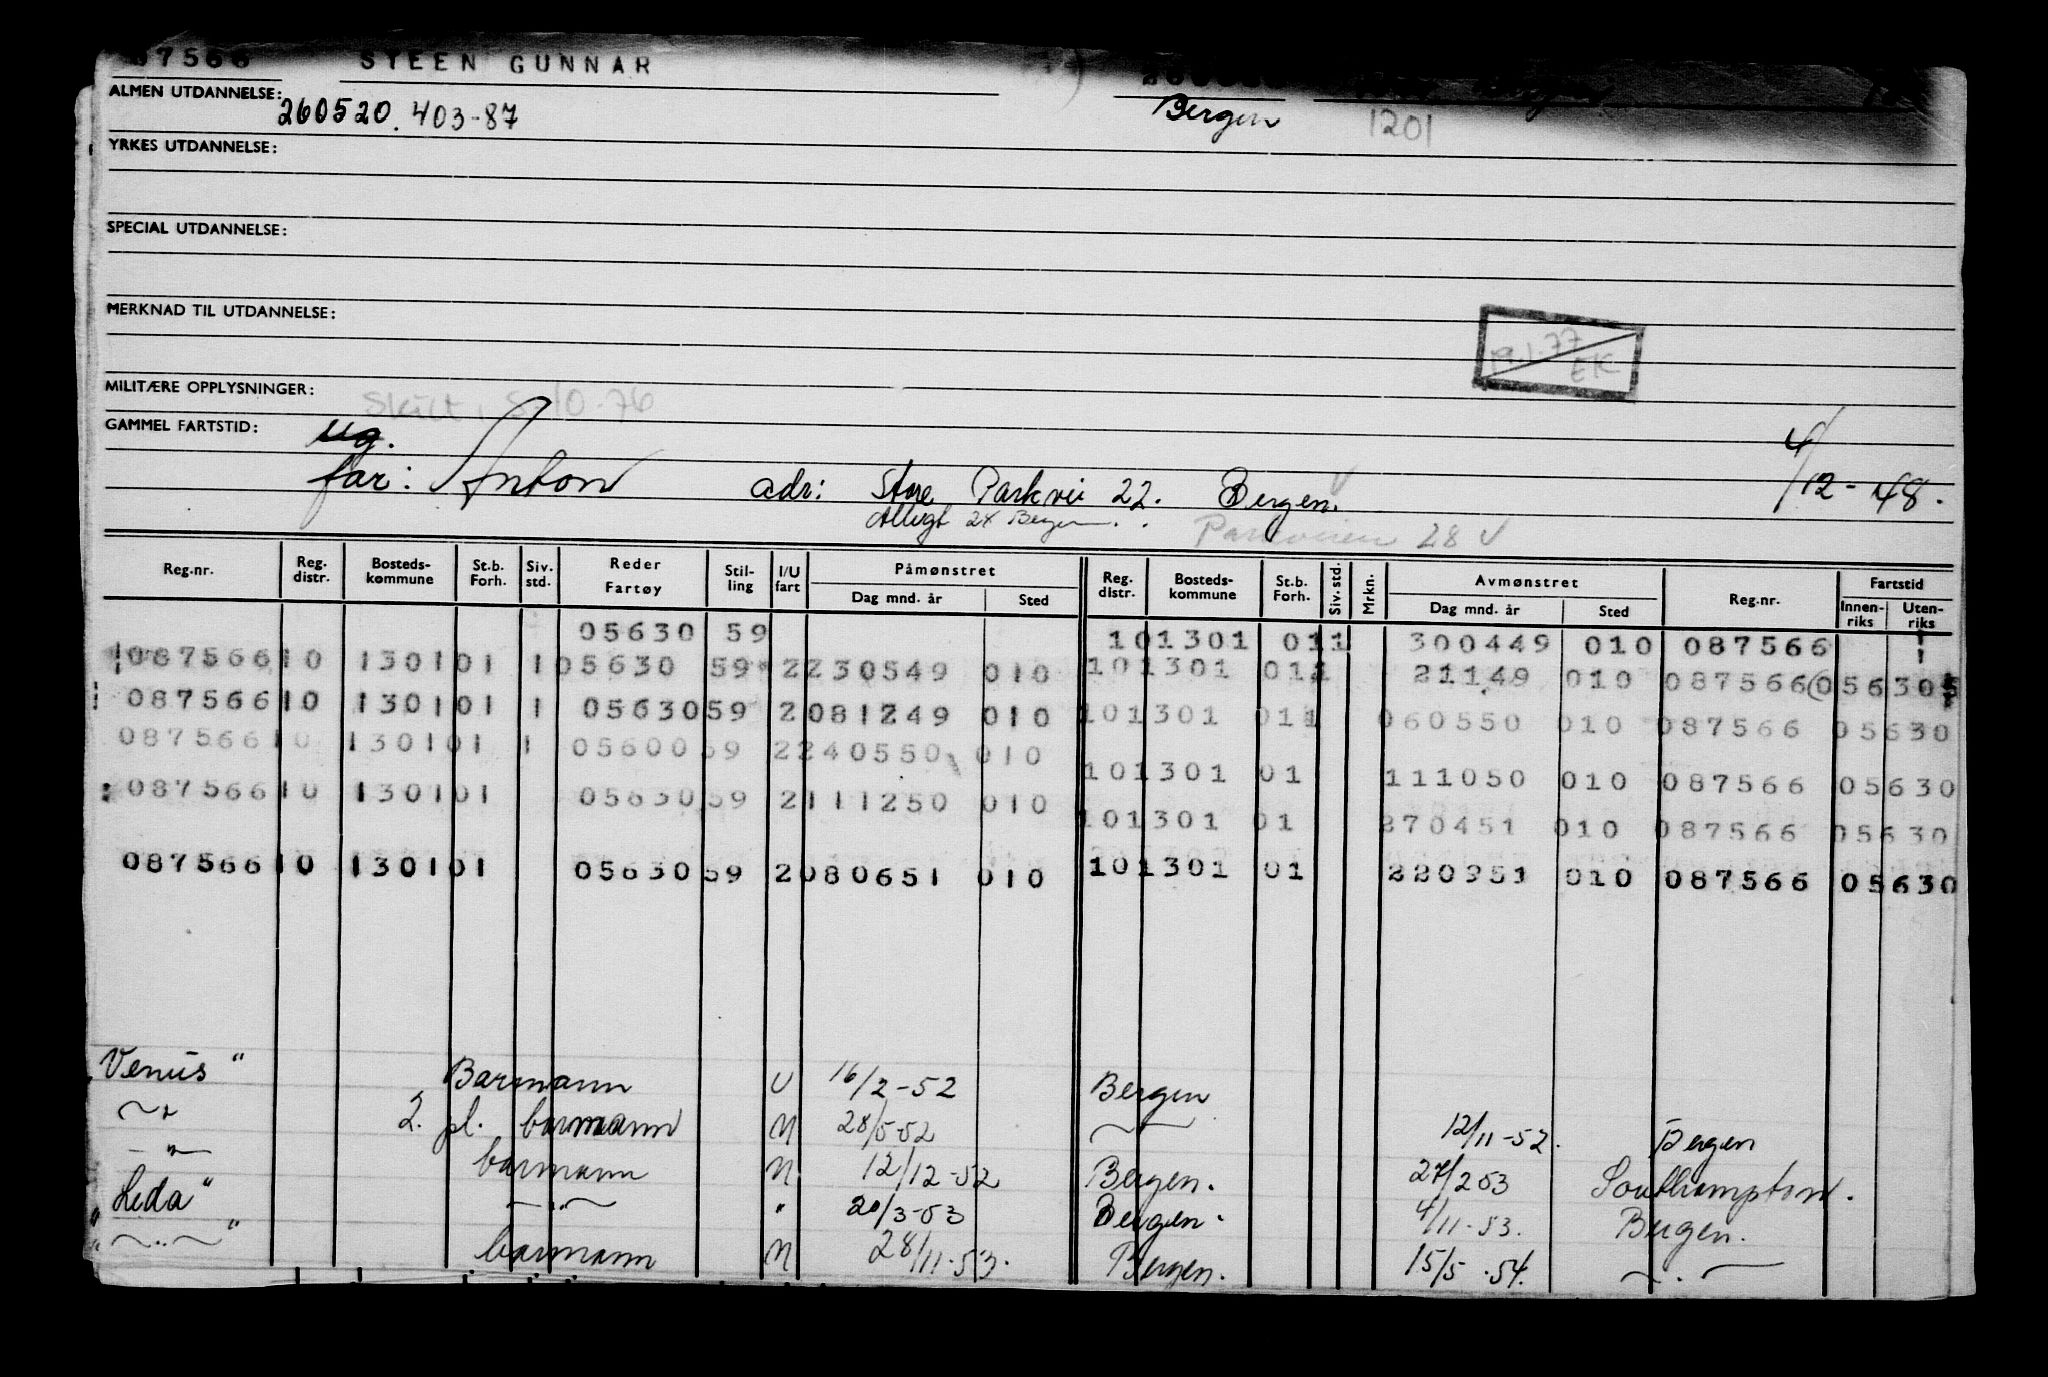 87566 STEEN GUNNAR
ALMEN UTDANNELSE: 260520.403-87 Bergen 1201
YRKES UTDANNELSE:
SPECIAL UTDANNELSE:
MERKNAD TIL UTDANNELSE:
77 EK
MILITÆRE OPPLYSNINGER:
GAMMEL FARTSTID: ug.
4/12-48.
far: Anton adr: Store Parkvei 22. Bergen.
Allegt 24 Bergen.
Parkveien 28 V
Reg.nr. Reg. distr. Bosteds-kommune St.b. Forh. Siv. std. Reder Fartøy Stil-ling I/U fart Påmønstret Dag mnd. år Sted Reg. distr. Bosteds-kommune St.b. Forh. Siv. std. Mrkn. Avmønstret Dag mnd. år Sted Reg.nr. Fartstid Innen-riks Uten-riks
05630 59 101301 011 300449 010 087566
08756610 130101 105630 59 2230549 010 101301 011 21149 010 087566 05630
08756610 130101 1 0563059 2081249 010 101301 011 060550 010 087566 05630
08756610 130101 1 0560059 2240550 010 101301 01 111050 010 087566 05630
08756610 130101 0563059 2111250 010 101301 01 270451 010 087566 05630
08756610 130101 0563059 2080651 010 101301 01 220951 010 087566 05630
Venus" Barmann U 16/2-52 Bergen
2. pl. barmann U 28/5-52 12/11-52. Bergen
-"- barmann U 12/12-52 Bergen. 27/2 53 Southampton.
Leda" -"- " 20/3-53 Bergen. 4/11-53. Bergen.
" -"- " barmann U 28/11-53. Bergen. 15/5-54. -"-